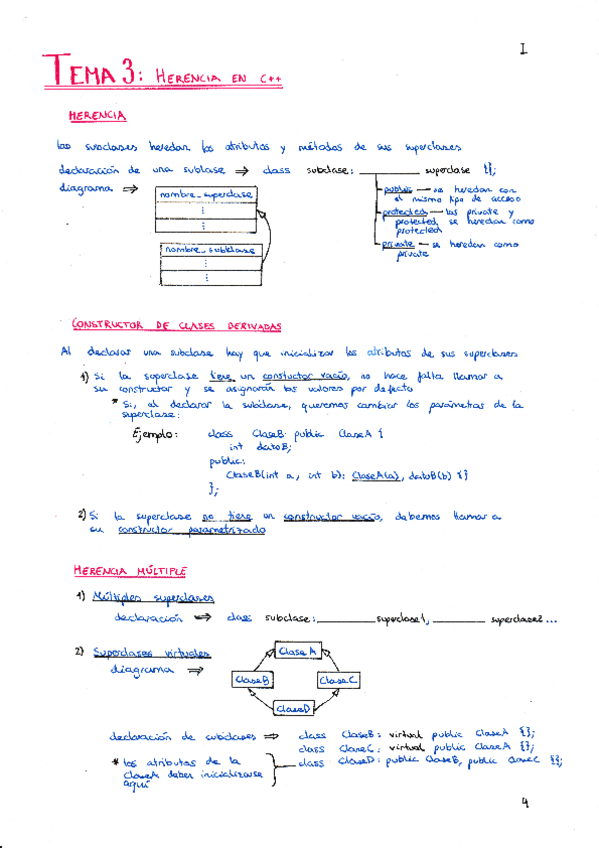 I
TEMA 3: HERENCIA EN C++
HERENCIA
Las subclases heredan los atributos y métodos de sus superclases
declaración de una sublase ⇒ class subclase: ________ superclase {};
public — se heredan con
el mismo tipo de acceso
protected — los private y
protected, se heredan como
protected
private — se heredan como
private
diagrama ⇒
nombre_superclase
⋮
nombre_subclase
⋮
CONSTRUCTOR DE CLASES DERIVADAS
Al declarar una subclase hay que inicializar los atributos de sus superclases
1) Si la superclase tiene un constuctor vacío, no hace falta llamar a
su constructor y se asignarán los valores por defecto
* Si, al declarar la subclase, queremos cambiar los parámetros de la
superclase:
Ejemplo: class ClaseB: public ClaseA {
int datoB;
public:
ClaseB(int a, int b): ClaseA(a), datoB(b) {}
};
2) Si la superclase no tiene un constructor vacío, debemos llamar a
su constructor parametrizado
HERENCIA MÚLTIPLE
1) Múltiples superclases
declaración ⇒ class subclase: ________ superclase1, ________ superclase2 ...
2) Superclases virtuales
diagrama ⇒
Clase A
ClaseB
ClaseC
ClaseD
declaración de subclases ⇒ class ClaseB: virtual public ClaseA {};
class ClaseC: virtual public ClaseA {};
class ClaseD: public ClaseB, public ClaseC {};
* los atributos de la
claseA deben inicializarse
aquí
4